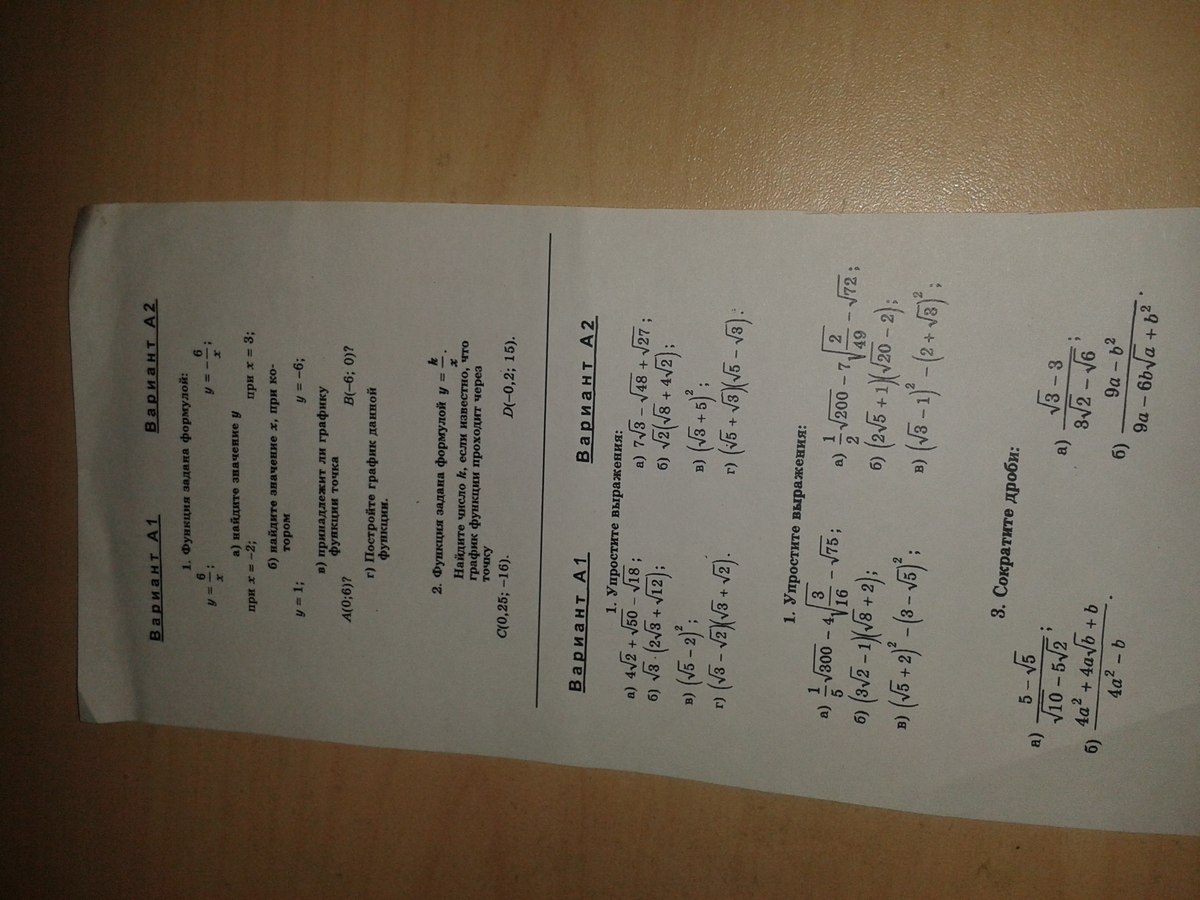 Вариант А1 Вариант А2
1. Функция задана формулой:
y = 6/x; y = −6/x;
а) найдите значение y
при x = −2; при x = 3;
б) найдите значение x, при ко-
тором
y = 1; y = −6;
в) принадлежит ли графику
функции точка
A(0;6)? B(−6; 0)?
г) Постройте график данной
функции.
2. Функция задана формулой y = k/x.
Найдите число k, если известно, что
график функции проходит через
точку
C(0,25; −16). D(−0,2; 15).
Вариант А1 Вариант А2
1. Упростите выражения:
а) 4√2 + √50 − √18; а) 7√3 − √48 + √27;
б) √3 · (2√3 + √12); б) √2(√8 + 4√2);
в) (√5 − 2)²; в) (√3 + 5)²;
г) (√3 − √2)(√3 + √2). г) (√5 + √3)(√5 − √3).
1. Упростите выражения:
а) 1/5 √300 − 4√(3/16) − √75; а) 1/2 √200 − 7√(2/49) − √72;
б) (3√2 − 1)(√8 + 2); б) (2√5 + 1)(√20 − 2);
в) (√5 + 2)² − (3 − √5)²; в) (√3 − 1)² − (2 + √3)²;
3. Сократите дроби:
а) (5 − √5)/(√10 − 5√2); а) (√3 − 3)/(3√2 − √6);
б) (4a² + 4a√b + b)/(4a² − b). б) (9a − b²)/(9a − 6b√a + b²).